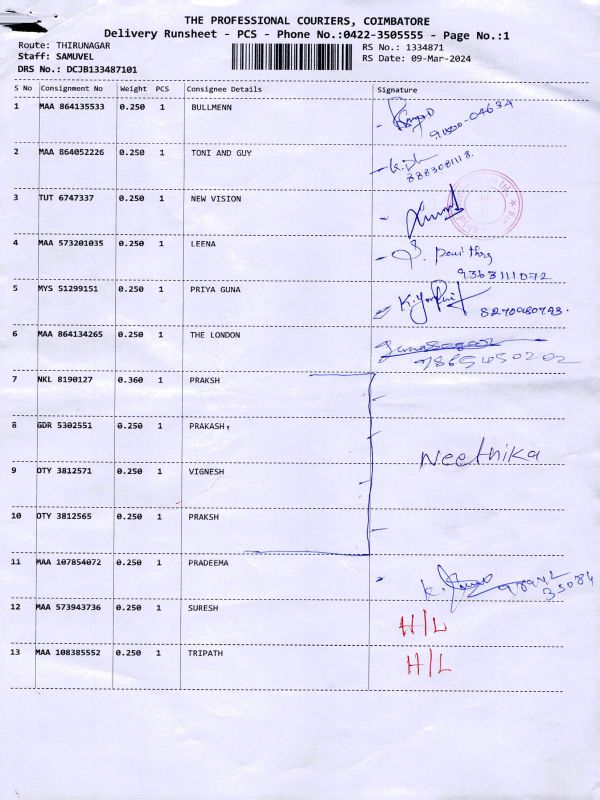 THE PROFESSIONAL COURIERS, COIMBATORE
Delivery Runsheet - PCS - Phone No.:0422-3505555 - Page No.:1
Route: THIRUNAGAR RS No.: 1334871
Staff: SAMUVEL RS Date: 09-Mar-2024
DRS No.: DCJB133487101
S No Consignment No Weight PCS Consignee Details Signature
1 MAA 864135533 0.250 1 BULLMENN
2 MAA 864052226 0.250 1 TONI AND GUY
8883081118.
3 TUT 6747337 0.250 1 NEW VISION
4 MAA 573201035 0.250 1 LEENA
9363111072
5 MYS 51299151 0.250 1 PRIYA GUNA
8270980793.
6 MAA 864134265 0.250 1 THE LONDON
7 NKL 8190127 0.360 1 PRAKSH
8 GDR 5302551 0.250 1 PRAKASH
Neethika
9 OTY 3812571 0.250 1 VIGNESH
10 OTY 3812565 0.250 1 PRAKSH
11 MAA 107854072 0.250 1 PRADEEMA
98942
35084
12 MAA 573943736 0.250 1 SURESH H/L
13 MAA 108385552 0.250 1 TRIPATH H/L